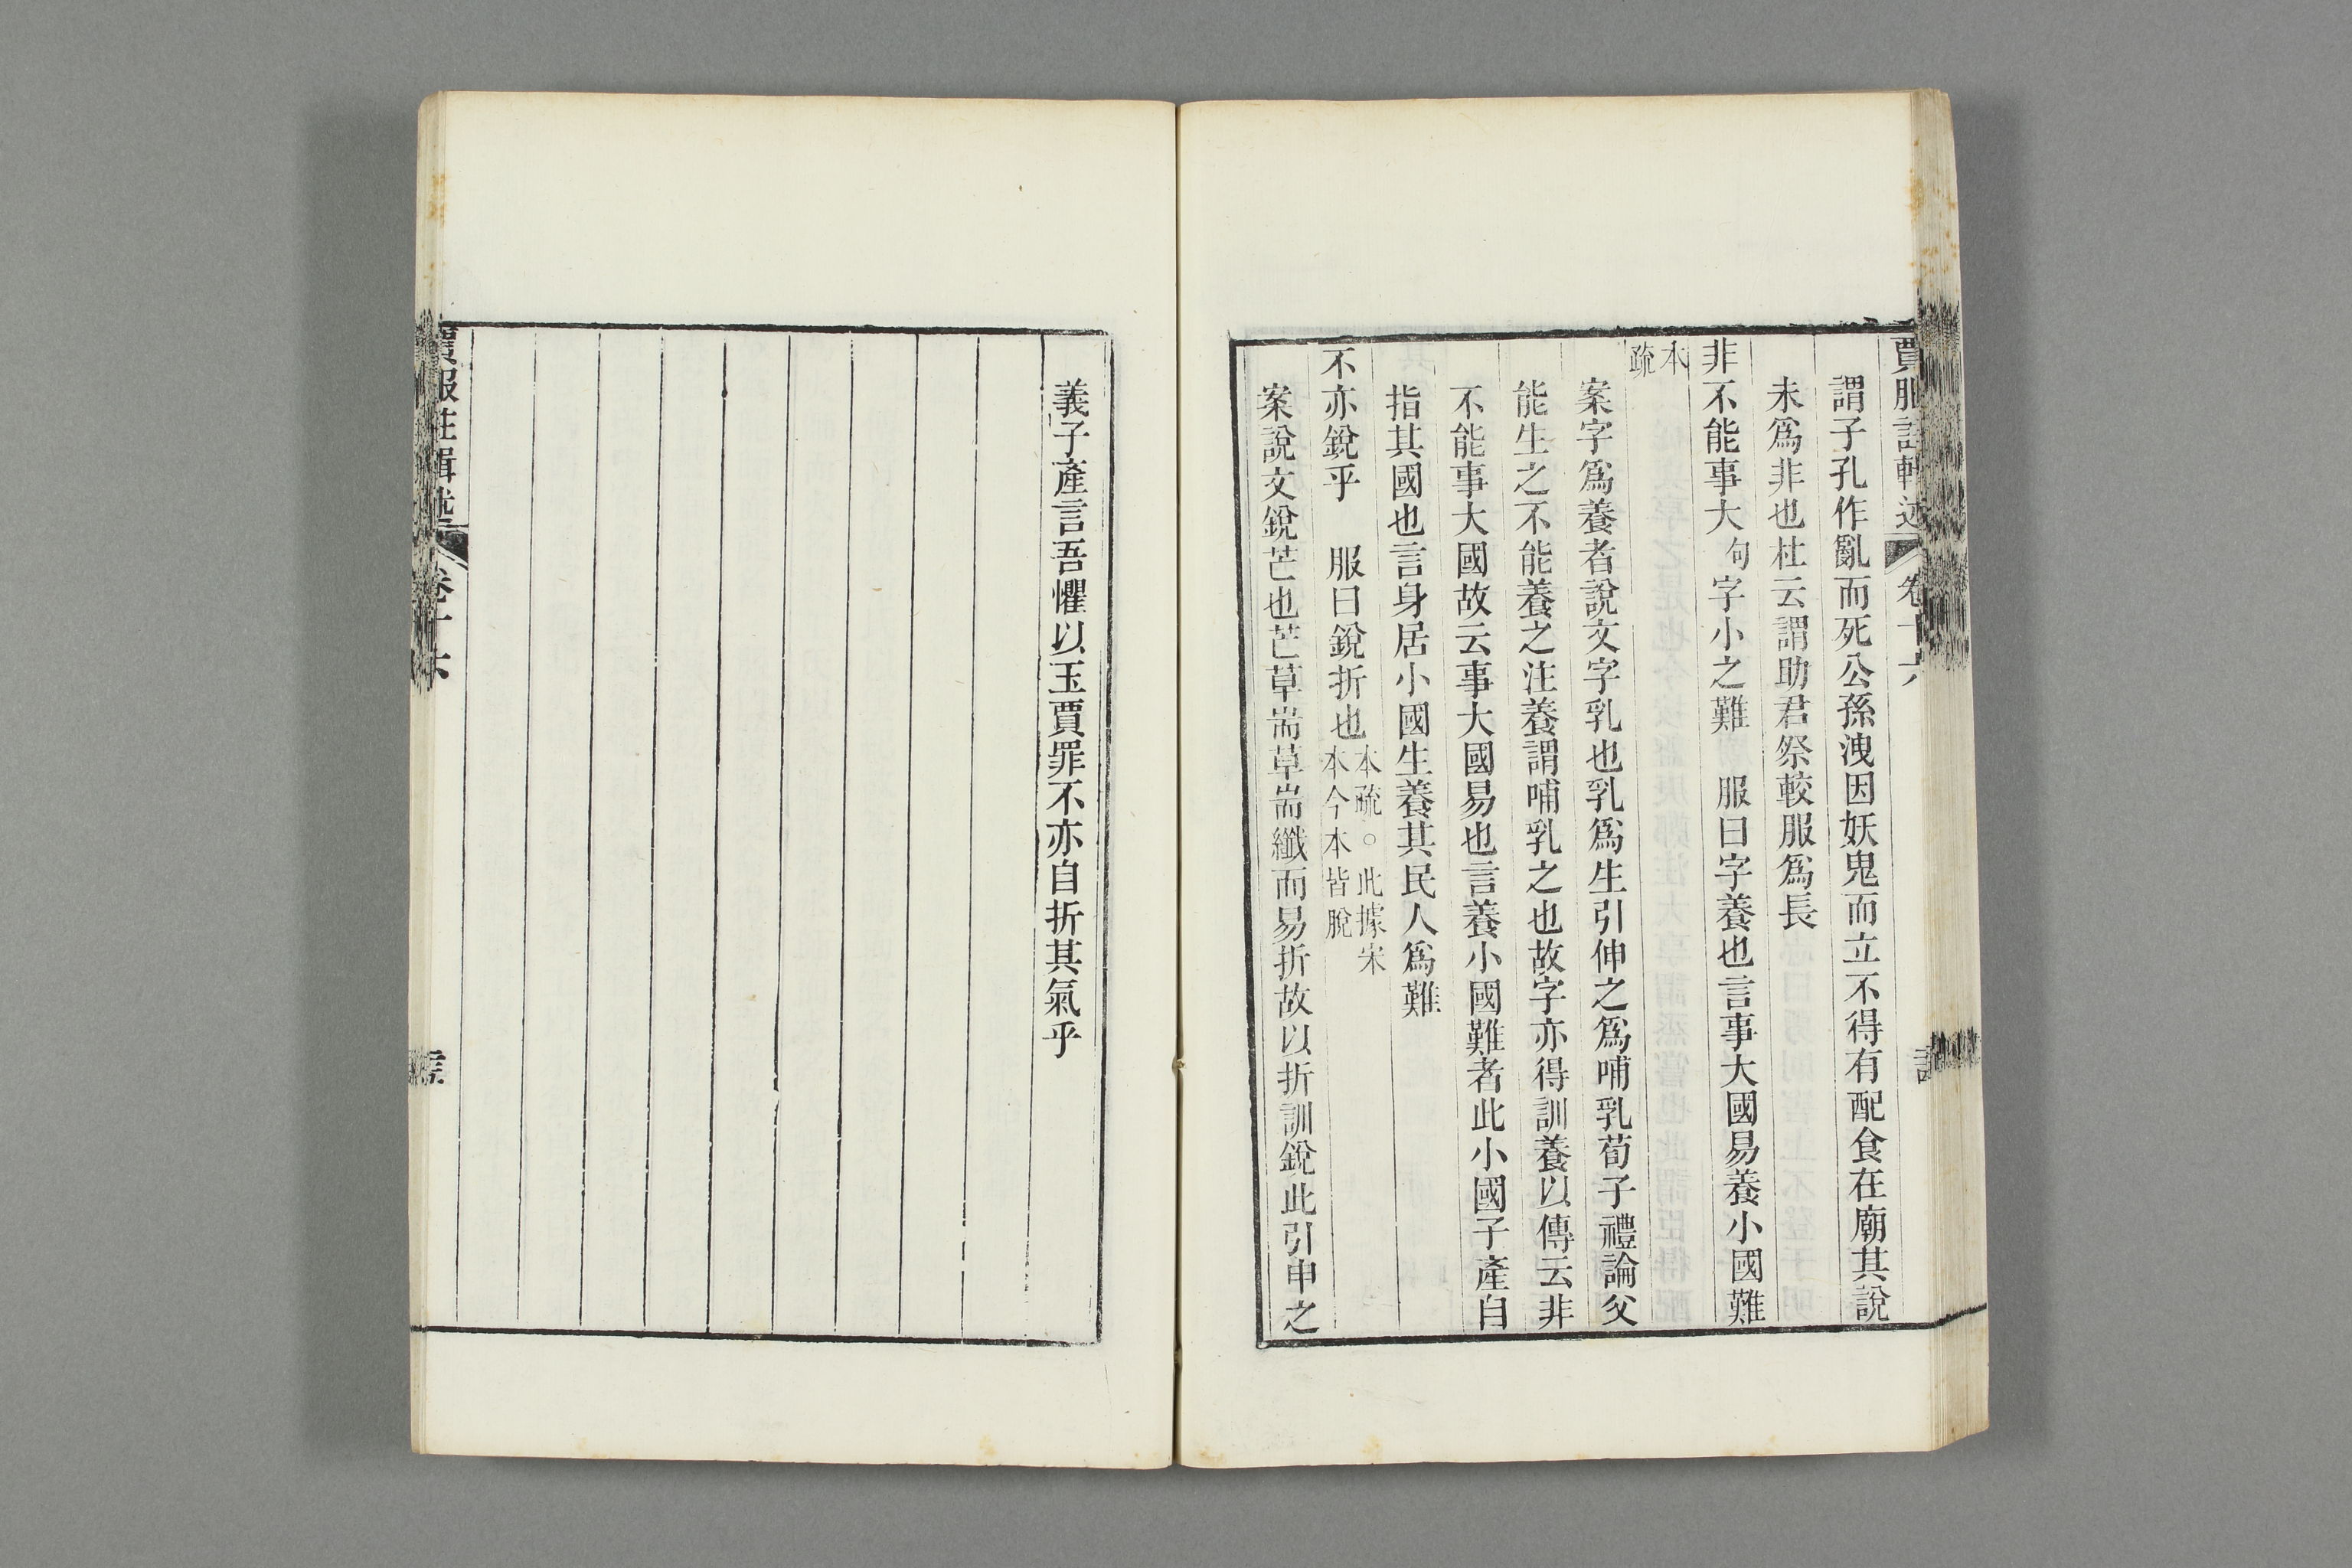 謂子孔作亂而死公孫洩因妖鬼而立不得有配食在廟其說
未爲非也杜云謂助君祭較服爲長
非不能事大句字小之難　服曰字養也言事大國易養小國難
本
疏
案字爲養者說文字乳也乳爲生引伸之爲哺乳荀子禮論父
能生之不能養之注養謂哺乳之也故字亦得訓養以傳云非
不能事大國故云事大國易也言養小國難者此小國子產自
指其國也言身居小國生養其民人爲難
不亦銳乎　服曰銳折也
本疏○此據宋
本今本皆脫
案說文銳芒也芒草耑草耑纖而易折故以折訓銳此引申之
義子產言吾懼以玉賈罪不亦自折其氣乎
賈服注輯述
卷十六